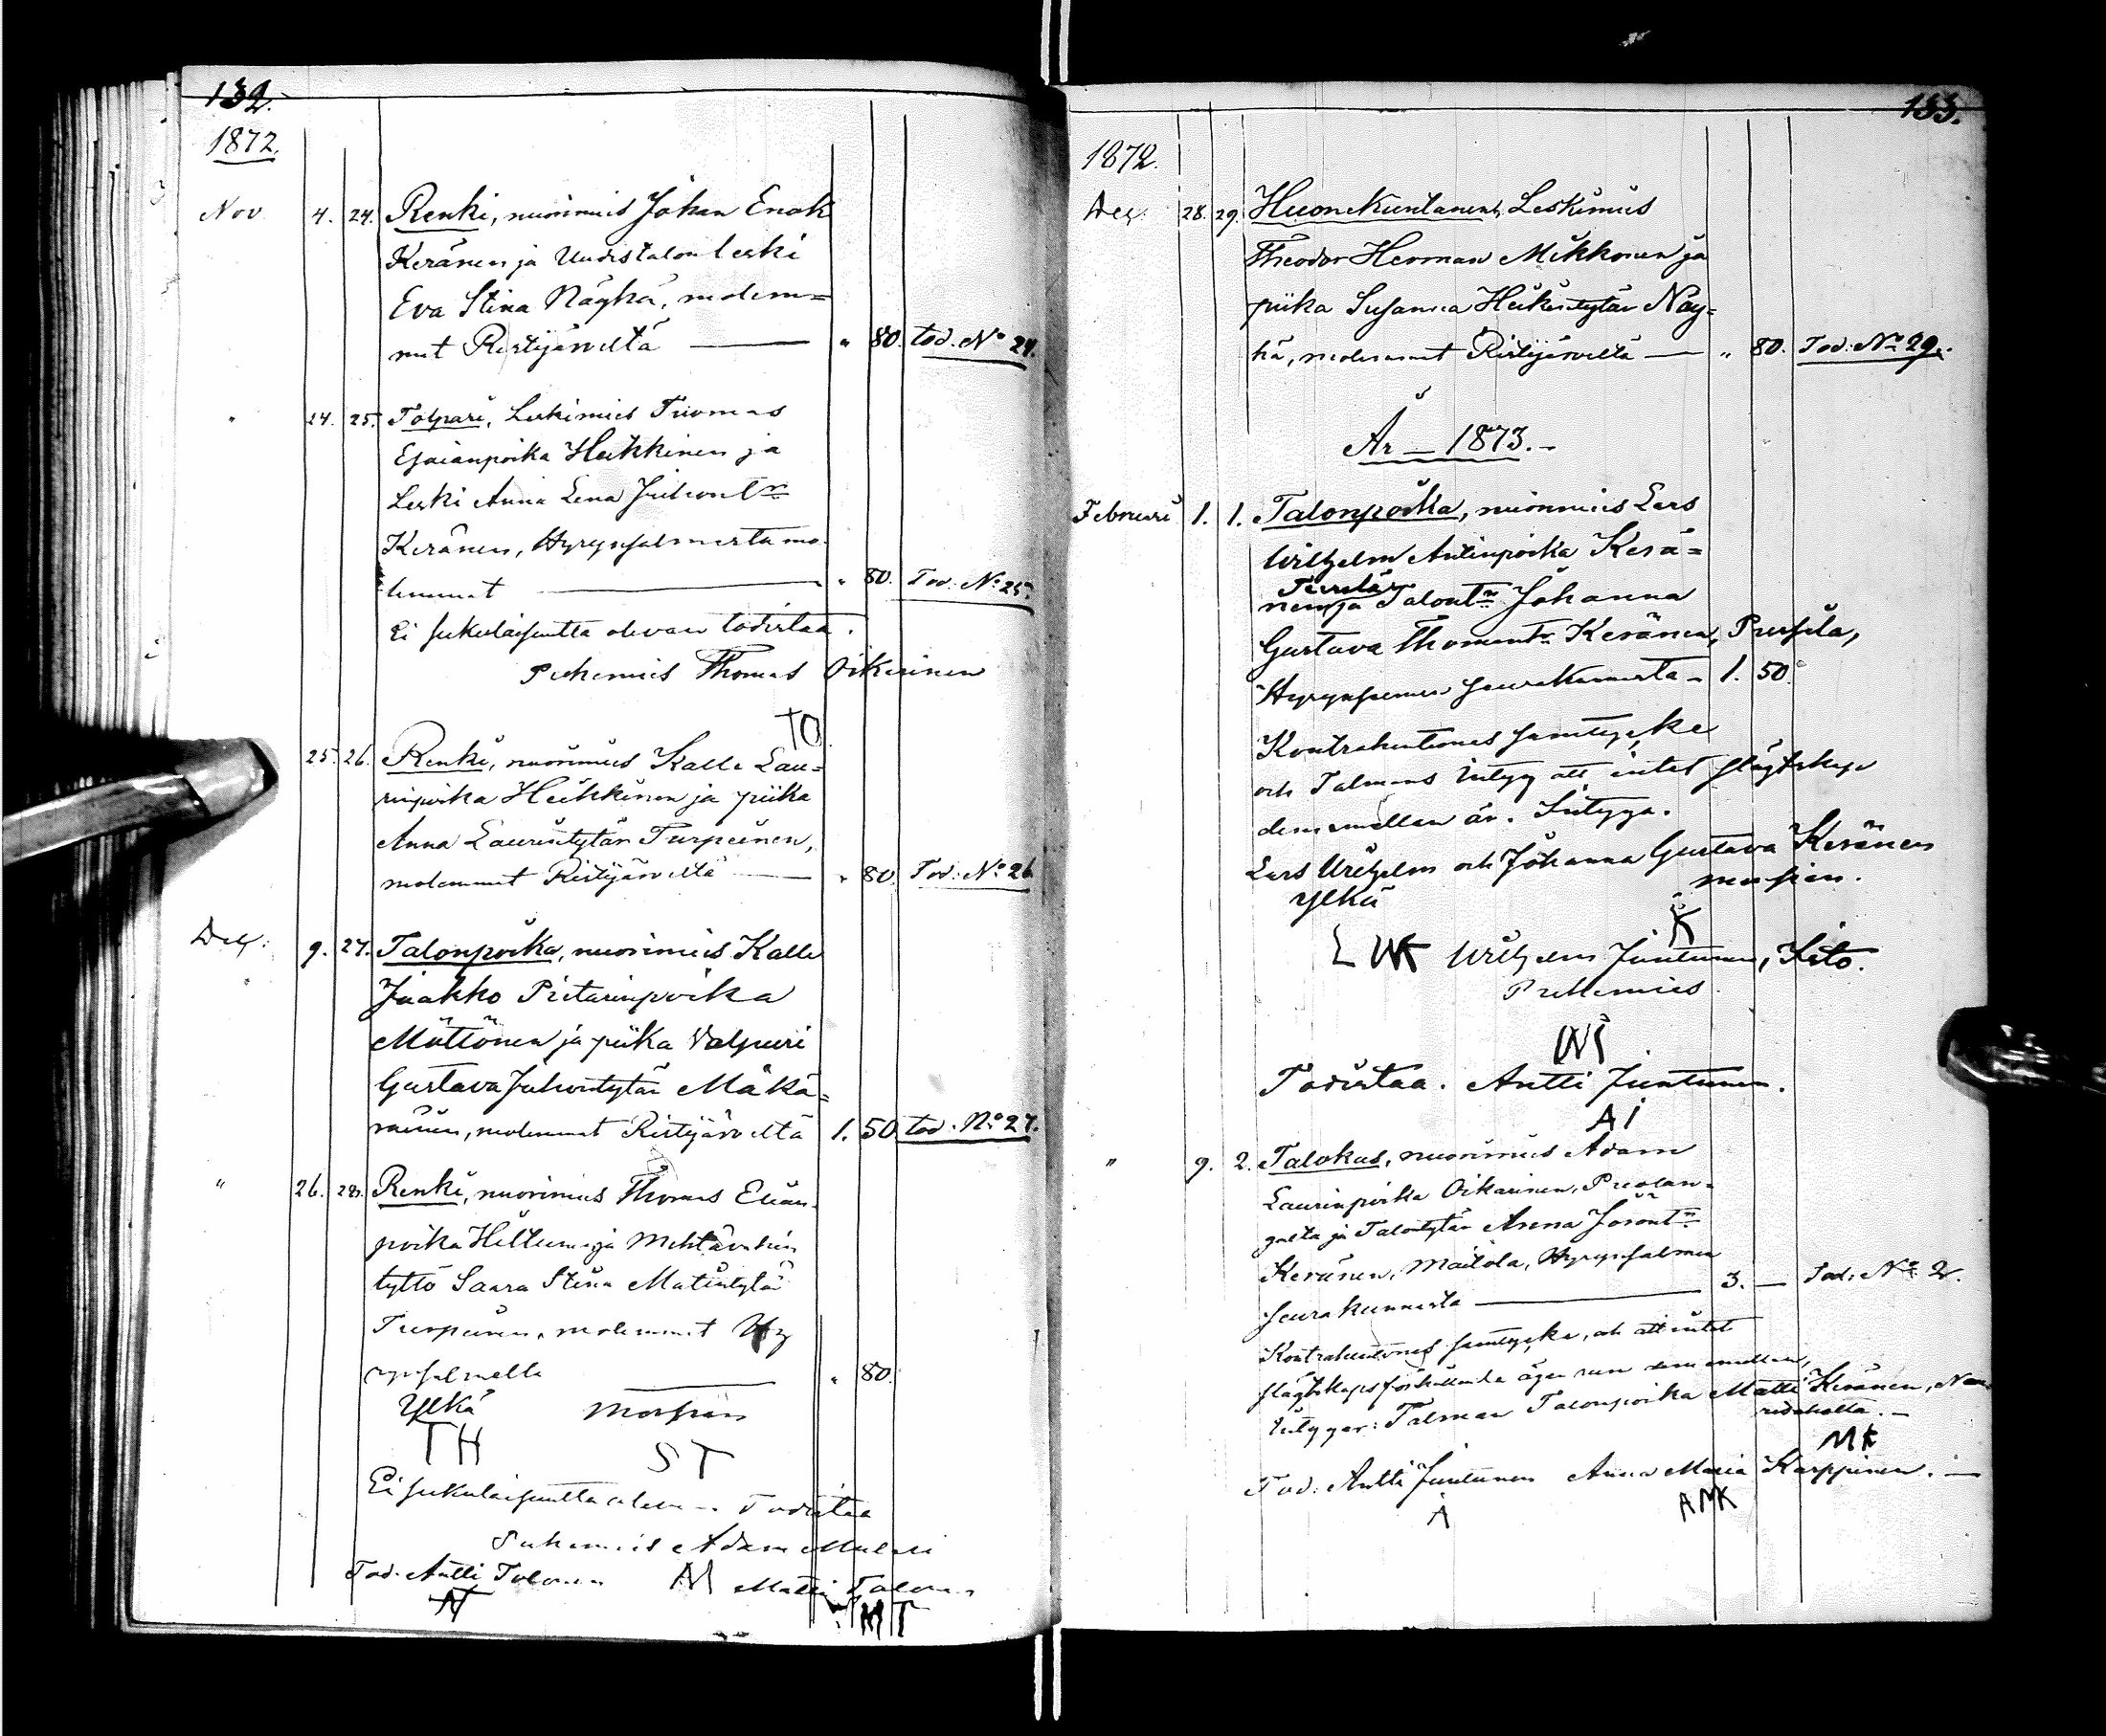 132.
1872.
Nov. 4. 24. Renki, nuorimies Johan Enok
Keränen ja Uudistalon leski
Eva Stina Näyhä, molem=
mat Ristijärveltä — " 80. tod. No 24.
" 24. 25. Tolpari, Leskimies Tuomas
Esaianpoika Heikkinen ja
Leski Anna Lena Juhont:r
Keränen, Hyrynsalmesta mo-
lemmat — " 80. Tod. No 25.
Ei sukulaisuutta olevan todistaa.
Puhemies Thomas Oikarinen
TO
25. 26. Renki, nuorimies Kalle Lau=
rinpoika Heikkinen ja piika
Anna Laurintytär Turpeinen,
molemmat Ristijärveltä — " 80. Tod. No 26
Dec: 9. 27. Talonpoika, nuorimies Kalle
Jaakko Pietarinpoika
Möttönen ja piika Valpuri
Gustava Juhontytär Mäkä=
räinen, molemmat Ristijärveltä 1. 50 tod. No 27.
" 26. 28. Renki, nuorimies Thomas Elian
poika Heltunen ja
tyttö Saara Stina Matintytär
Turpeinen, molemmat Hy
rynsalmella — " 80.
Ylkä Morsian
TH ST
Ei sukulaisuutta olevan Todistaa
Puhemies Adam
Tod. Antti Tolonen AM Matti Tolonen
AT MT
133.
1872.
Dec: 28. 29. Huonekuntanen, Leskimies
Theodor Herman Mikkonen ja
piika Susanna Heikintytär Näy=
hä, molemmat Ristijärveltä — " 80. Tod: No 29.
År — 1873. -
Februari 1. 1. Talonpoika, nuorimies Lars
Wilhelm Antinpoika Kerä=
nen ja Talont:r Johanna
Gustava Thomant:r Keränen,
Hyrynsalmen seurakunnasta - 1. 50.
Kontrahenternes samtycke
och Talmans intyg att intet slägtskap
dem emellan är. Intyga.
Lars Wilhelm och Johanna Gustava Keränen
Ylkä morsian.
LWK K
Wilhelm Juntunen, Kito.
Puhemies
WJ
Todistaa. Antti Juntunen.
AJ
" 9. 2. Talokas, nuorimies Adam
Laurinpoika Oikarinen, Puolan=
galta ja Talontytär Anna
Keränen, Moilola, Hyrynsalmen
seurakunnasta — 3. — Tod. No 2.
Kontrahenternes samtycke, och att intet
slägtskapsförhållande äger rum dem emellan,
intygar: Talman Talonpoika Matti Keränen,
MK
Tod: Antti Juntunen Anna Maria Karppinen. —
A AMK